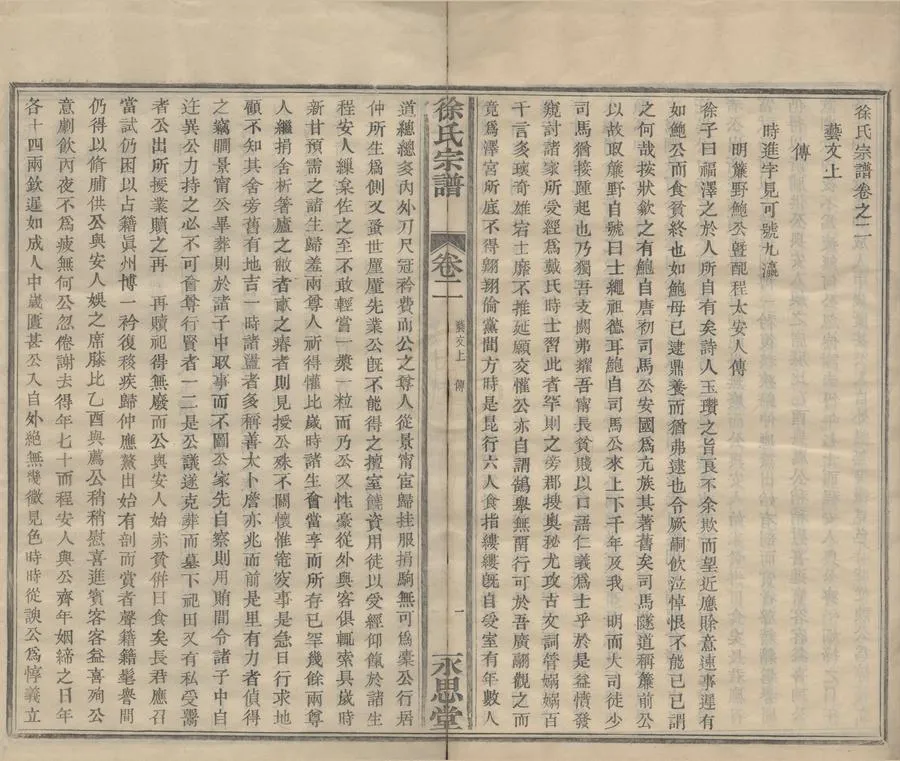 徐氏宗譜卷之二
藝文上
傳
時進字見可號九瀛
明簾野鮑公曁配程太安人傳
徐子曰福澤之於人所自有矣詩人玉瓚之旨良不余欺而望近應賒意速事遲有
如鮑公而食貧終也如鮑母已逮鼎養而猶弗逮也令厥嗣飲泣悼恨不能已已謂
之何哉按狀歙之有鮑自唐初司馬公安國爲亢族其著舊矣司馬隧道稱簾前公
以故取簾野自號曰士繩祖德耳鮑自司馬公來上下千年及我 明而大司徒少
司馬猶接踵起也乃獨吾支闕弗耀吾甯長貧賤以口語仁義爲士乎於是益憤發
窺討諸家所受經爲戴氏時士習此者罕則之旁郡搜奥秘尤攻古文詞管娲娲百
千言多瓌奇雄宕士靡不推延願交懽公亦自謂鵠舉無南行可於吾廣翩觀之而
竟爲澤宮所底不得翺翔倫黨間方時是昆行六人食指縷縷旣自受室有年數人
徐氏宗譜 卷二 藝文上 傳 一 永思堂
道總總多內外刀尺冠衿費而公之尊人從景甯宦歸挂服捐駒無可爲橐公行居
仲所生爲側又蚤世厪厪先業公旣不能得之擅室饒資用徒以受經仰餼於諸生
程安人繅枲佐之至不敢輕嘗一漿一粒而乃公又性豪從外與客俱輒索具歲時
新甘預需之諸生歸羞兩尊人祈得懽比歲時諸生會當享而所存已罕幾餘兩尊
人繼捐舍析箸廬之敝者畝之瘠者則見授公殊不關懷惟窀穸事是急日行求地
顧不知其舍旁舊有地吉一時諸盬者多稱善太卜詹亦兆而前是里有力者偵得
之竊瞯景甯公畢葬則於諸子中取事而不圖公家先自察則用賄間令諸子中自
迕異公力持之必不可會尊行賢者一二是公議遂克葬而墓下祀田又有私受鬻
者公出所授業贖之再 再贖祀得無廢而公與安人始亦貧併日食矣長君應召
當試仍困以占籍眞州博一衿復移疾歸仲應鰲出始有剖而賞者聲籍籍髦譽間
仍得以脩脯供公與安人娛之席滕比乙酉與薦公稍稍慰喜進賓客客益喜殉公
意劇飲丙夜不爲疲無何公忽倦謝去得年七十而程安人與公齊年姻締之日年
各十四兩欽暹如成人中歲匱甚公入自外絕無幾微見色時時從諛公爲惇義立